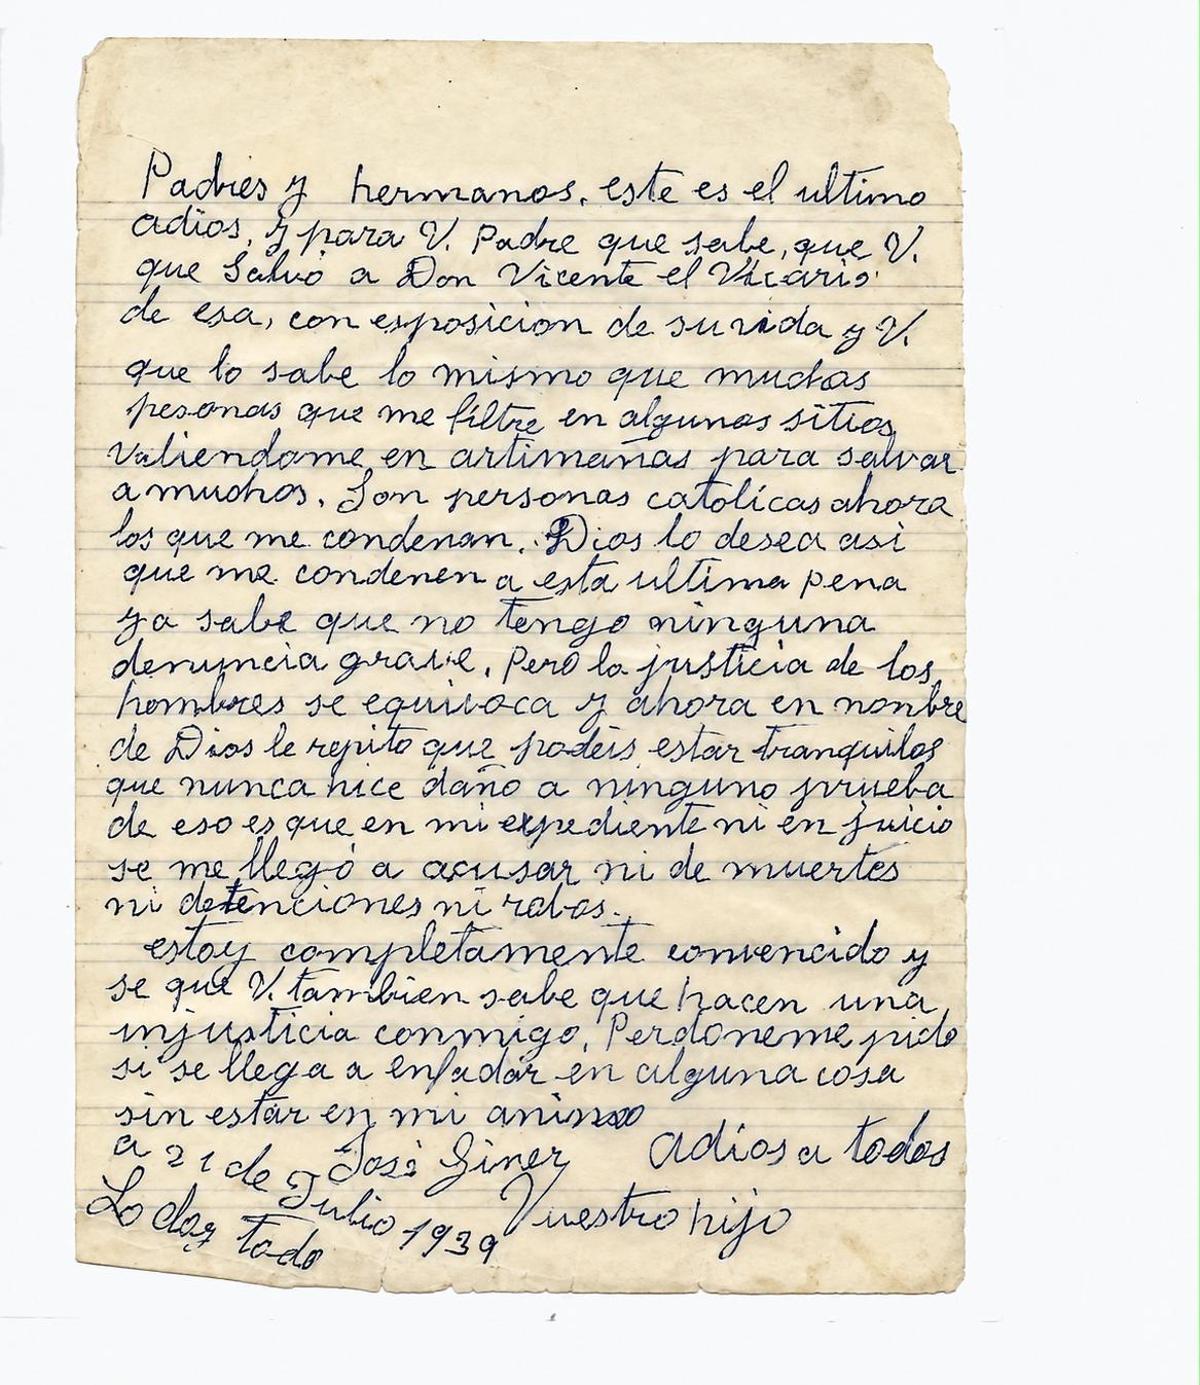 Padres y hermanos, este es el ultimo
adios, y para V. Padre que sabe, que V.
que Salvó a Don Vicente el Vicario
de esa, con esposicion de su vida y V.
que lo sabe lo mismo que muchas
pesonas que me filtre en algunos sitios
valiendome en artimañas para salvar
a muchos. Son personas catolicas ahora
los que me condenan. Dios lo desea asi
que me condenen a esta ultima pena
ya sabe que no tengo ninguna
denuncia grave. Pero la justicia de los
hombres se equivoca y ahora en nonbre
de Dios le repito que podeis estar tranquilos
que nunca hice daño a ninguno prueba
de eso es que en mi expediente ni en juicio
se me llegó a acusar ni de muertes
ni detenciones ni robos.
estoy completamente convencido y
se que V. tambien sabe que hacen una
injusticia conmigo. Perdoneme pido
si se llega a enfadar en alguna cosa
sin estar en mi animo
José Giner adios a todos
a 21 de Julio 1939 Vuestro hijo
Lo doy todo